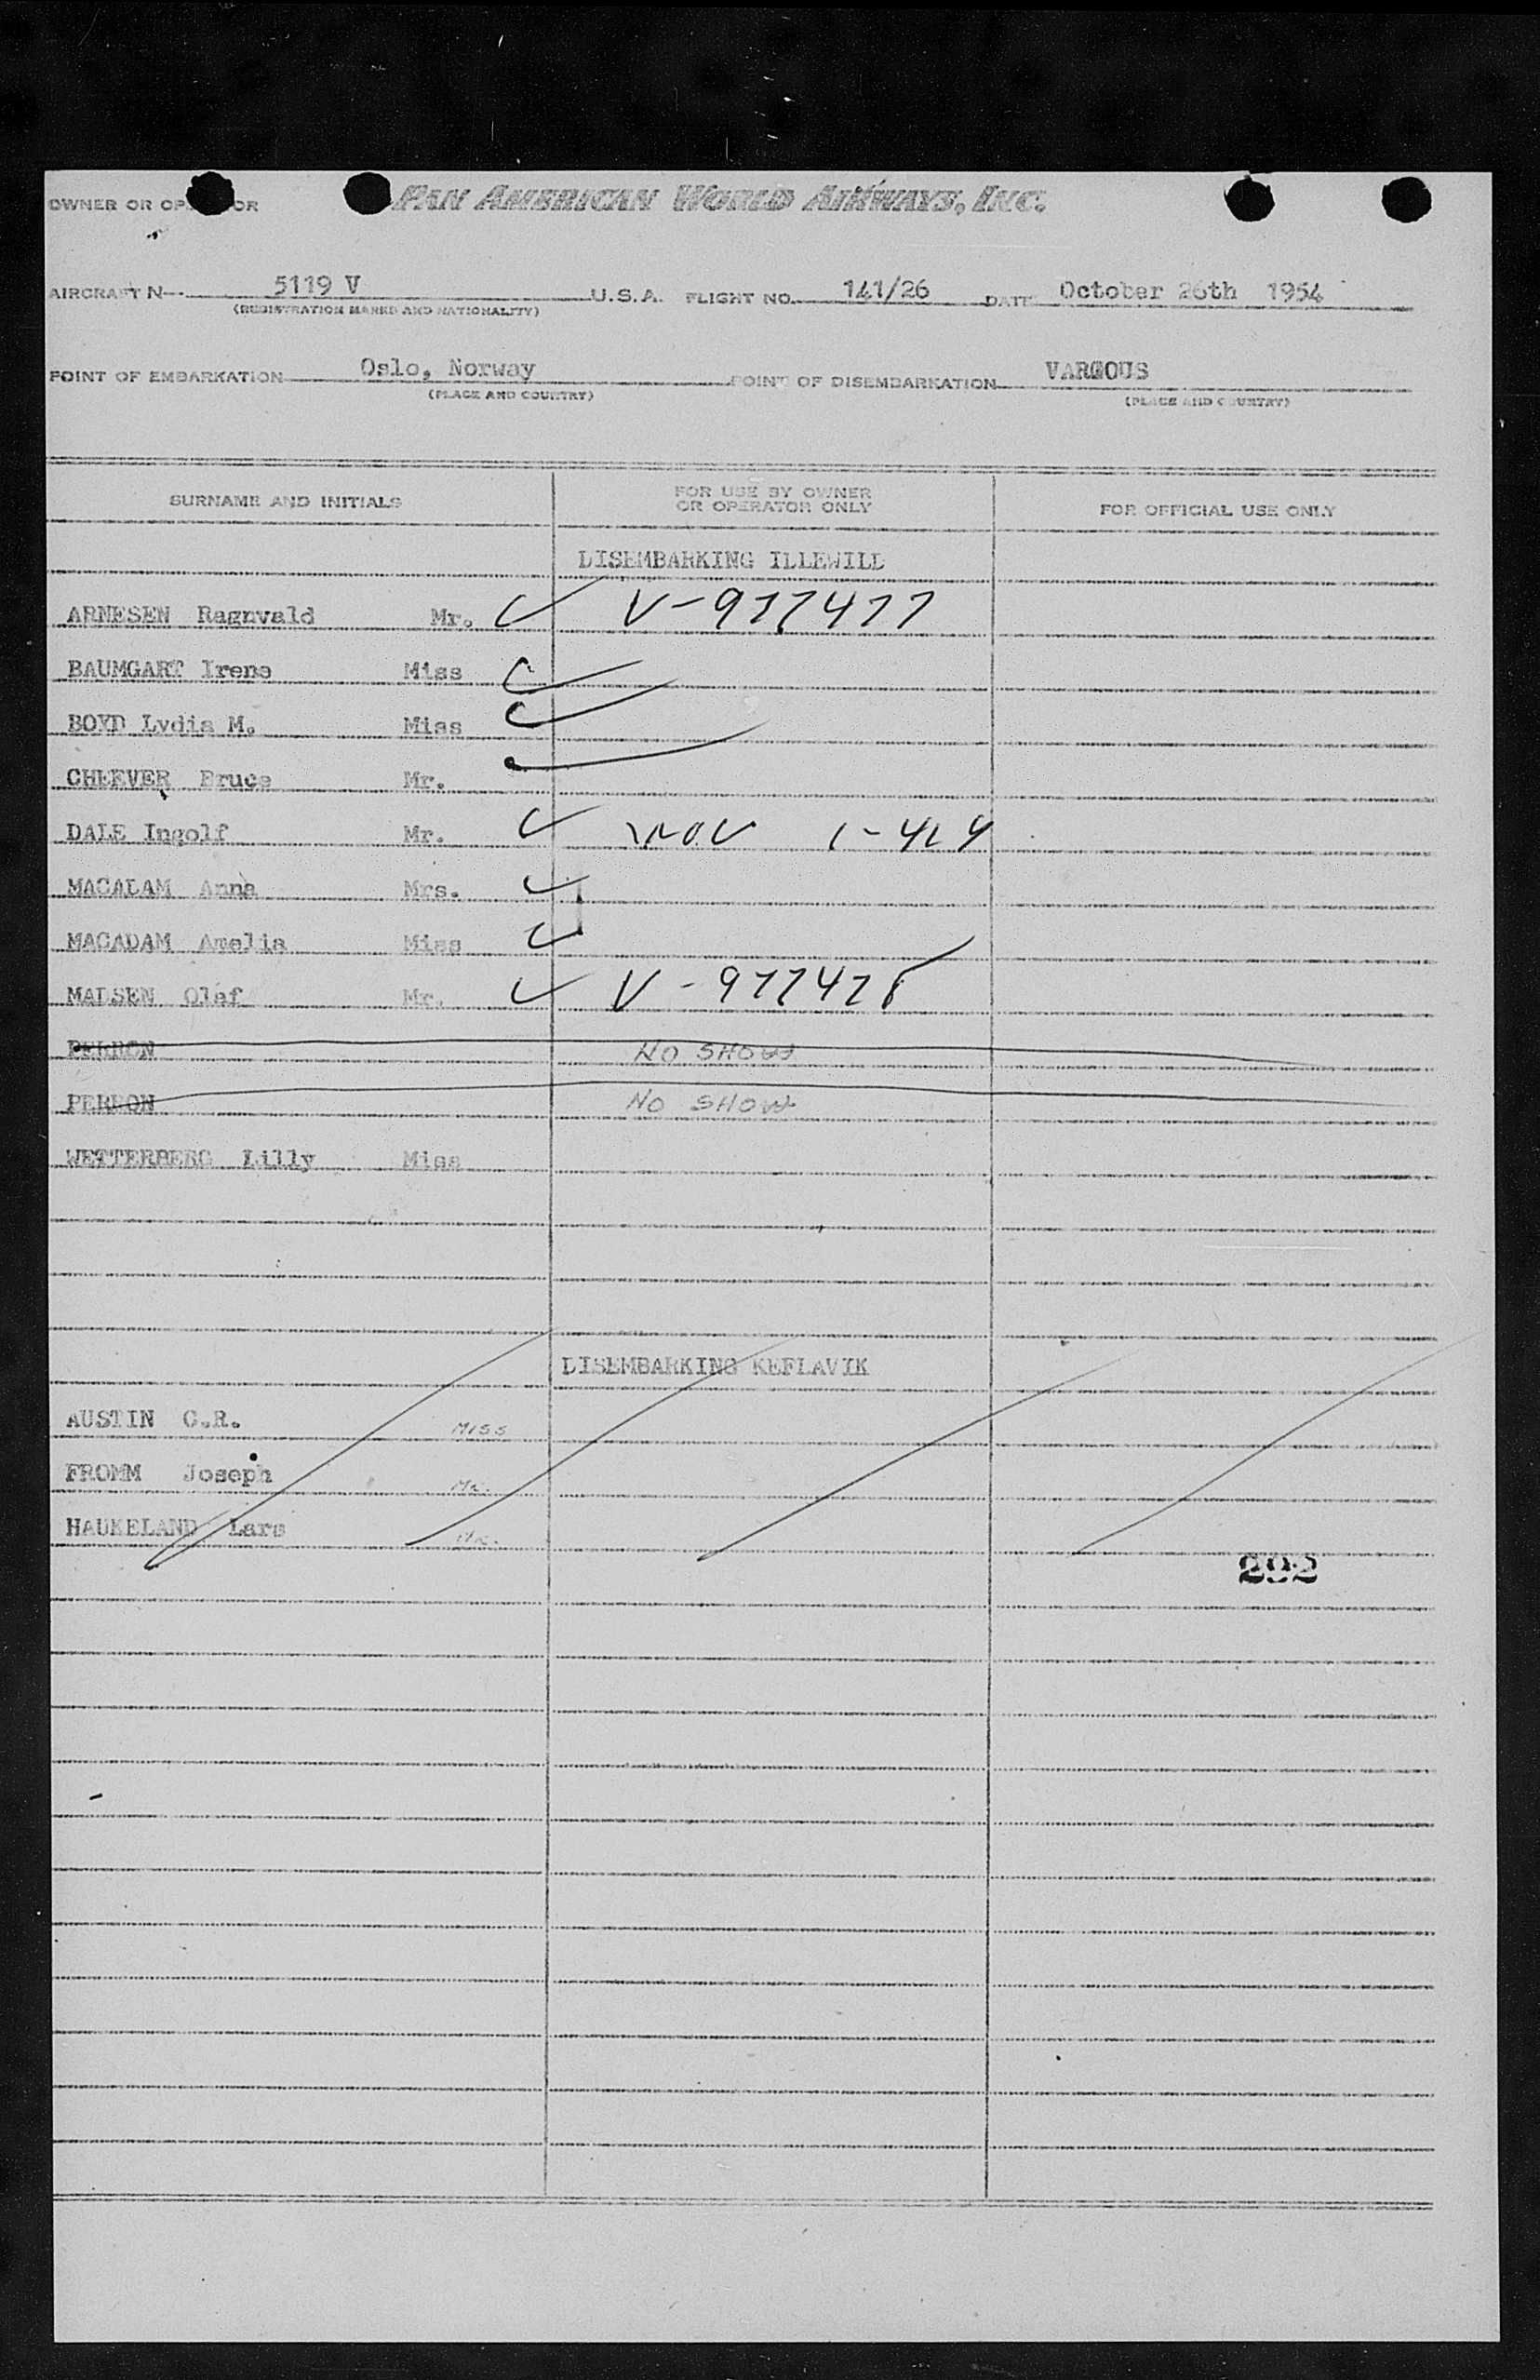 OWNER OR OPERATOR PAN AMERICAN WORLD AIRWAYS, INC.
AIRCRAFT N 5119 V U.S.A. FLIGHT NO. 141/26 DATE October 26th 1954
(REGISTRATION MARKS AND NATIONALITY)
POINT OF EMBARKATION Oslo, Norway POINT OF DISEMBARKATION VARGOUS
(PLACE AND COUNTRY) (PLACE AND COUNTRY)
SURNAME AND INITIALS FOR USE BY OWNER OR OPERATOR ONLY FOR OFFICIAL USE ONLY
DISEMBARKING ILLEWILD
ARNESEN Ragnvald Mr. V-977477
BAUMGART Irene Miss
BOYD Lydia M. Miss
CHEEVER Bruce Mr.
DALE Ingolf Mr.
MACADAM Anna Mrs.
MACADAM Amelia Miss
MADSEN Olaf Mr. V-977478
PERRON NO SHOW
PERRON NO SHOW
WETTERBERG Lilly Miss
DISEMBARKING KEFLAVIK
AUSTIN C.R. MISS
FROMM Joseph Mr.
HAUKELAND Lars Mr.
292